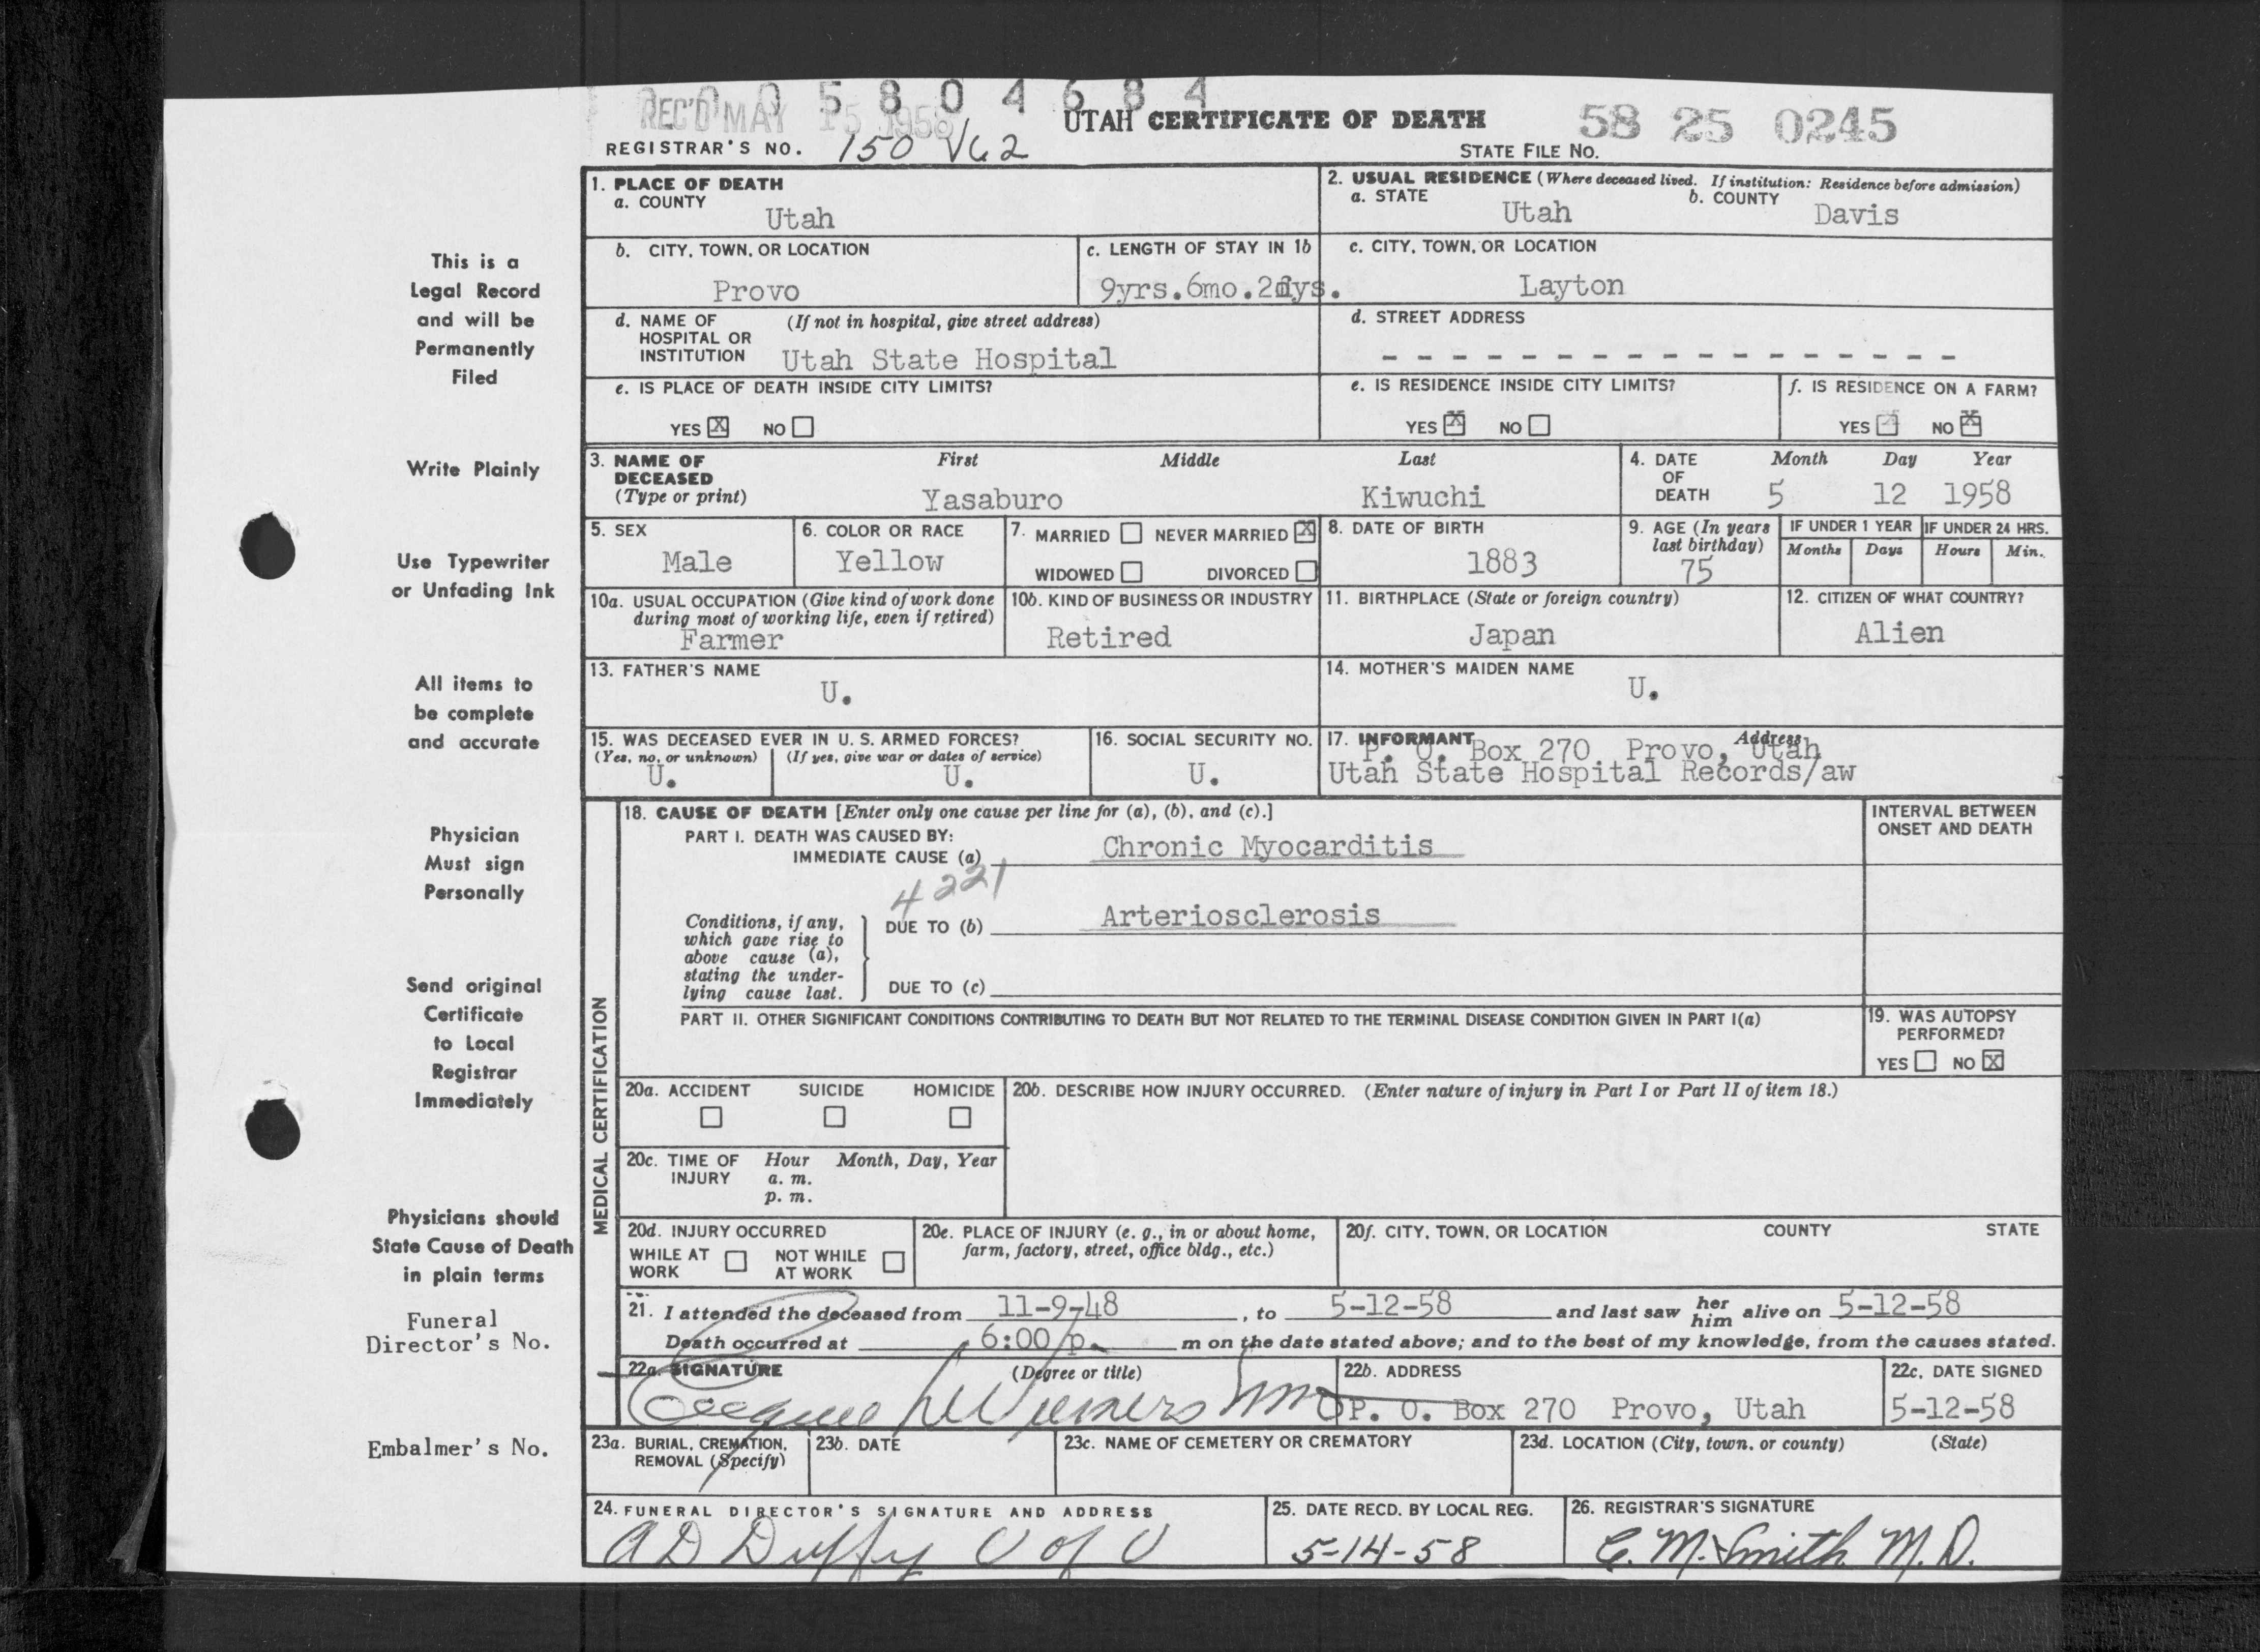 00 0 5 8 0 4 6 8 4
REC'D MAY 15 1958
UTAH CERTIFICATE OF DEATH
58 25 0245
REGISTRAR'S NO. 150
STATE FILE NO.
This is a
Legal Record
and will be
Permanently
Filed
Write Plainly
Use Typewriter
or Unfading Ink
All items to
be complete
and accurate
Physician
Must sign
Personally
Send original
Certificate
to Local
Registrar
Immediately
Physicians should
State Cause of Death
in plain terms
Funeral
Director's No.
Embalmer's No.
1. PLACE OF DEATH
a. COUNTY
Utah
2. USUAL RESIDENCE (Where deceased lived. If institution: Residence before admission)
a. STATE
Utah
b. COUNTY
Davis
b. CITY, TOWN, OR LOCATION
Provo
c. LENGTH OF STAY IN 1b
9yrs.6mo. dys.
c. CITY, TOWN, OR LOCATION
Layton
d. NAME OF (If not in hospital, give street address)
HOSPITAL OR
INSTITUTION Utah State Hospital
d. STREET ADDRESS
- - - - - - - - - - - - - - - - -
e. IS PLACE OF DEATH INSIDE CITY LIMITS?
YES X NO
e. IS RESIDENCE INSIDE CITY LIMITS?
YES X NO
f. IS RESIDENCE ON A FARM?
YES NO X
3. NAME OF First Middle Last
DECEASED
(Type or print) Yasaburo Kiwuchi
4. DATE Month Day Year
OF
DEATH 5 12 1958
5. SEX
Male
6. COLOR OR RACE
Yellow
7. MARRIED NEVER MARRIED X
WIDOWED DIVORCED
8. DATE OF BIRTH
1883
9. AGE (In years
last birthday)
75
IF UNDER 1 YEAR
Months Days
IF UNDER 24 HRS.
Hours Min.
10a. USUAL OCCUPATION (Give kind of work done
during most of working life, even if retired)
Farmer
10b. KIND OF BUSINESS OR INDUSTRY
Retired
11. BIRTHPLACE (State or foreign country)
Japan
12. CITIZEN OF WHAT COUNTRY?
Alien
13. FATHER'S NAME
U.
14. MOTHER'S MAIDEN NAME
U.
15. WAS DECEASED EVER IN U. S. ARMED FORCES?
(Yes, no, or unknown) (If yes, give war or dates of service)
U. U.
16. SOCIAL SECURITY NO.
U.
17. INFORMANT Address
P. O. Box 270 Provo, Utah
Utah State Hospital Records/aw
MEDICAL CERTIFICATION
18. CAUSE OF DEATH [Enter only one cause per line for (a), (b), and (c).]
PART I. DEATH WAS CAUSED BY:
IMMEDIATE CAUSE (a) Chronic Myocarditis
INTERVAL BETWEEN
ONSET AND DEATH
4221
Conditions, if any,
which gave rise to
above cause (a),
stating the under-
lying cause last.
DUE TO (b) Arteriosclerosis
DUE TO (c)
PART II. OTHER SIGNIFICANT CONDITIONS CONTRIBUTING TO DEATH BUT NOT RELATED TO THE TERMINAL DISEASE CONDITION GIVEN IN PART I(a)
19. WAS AUTOPSY
PERFORMED?
YES NO X
20a. ACCIDENT SUICIDE HOMICIDE
20b. DESCRIBE HOW INJURY OCCURRED. (Enter nature of injury in Part I or Part II of item 18.)
20c. TIME OF Hour Month, Day, Year
INJURY a. m.
p. m.
20d. INJURY OCCURRED
WHILE AT NOT WHILE
WORK AT WORK
20e. PLACE OF INJURY (e. g., in or about home,
farm, factory, street, office bldg., etc.)
20f. CITY, TOWN, OR LOCATION COUNTY STATE
21. I attended the deceased from 11-9-48, to 5-12-58 and last saw her him alive on 5-12-58
Death occurred at 6:00 p. m on the date stated above; and to the best of my knowledge, from the causes stated.
22a. SIGNATURE (Degree or title)
Eugene Wiemers MD
22b. ADDRESS
P. O. Box 270 Provo, Utah
22c. DATE SIGNED
5-12-58
23a. BURIAL, CREMATION,
REMOVAL (Specify)
23b. DATE
23c. NAME OF CEMETERY OR CREMATORY
23d. LOCATION (City, town, or county) (State)
24. FUNERAL DIRECTOR'S SIGNATURE AND ADDRESS
A D Duffy U of U
25. DATE RECD. BY LOCAL REG.
5-14-58
26. REGISTRAR'S SIGNATURE
C. M. Smith M. D.